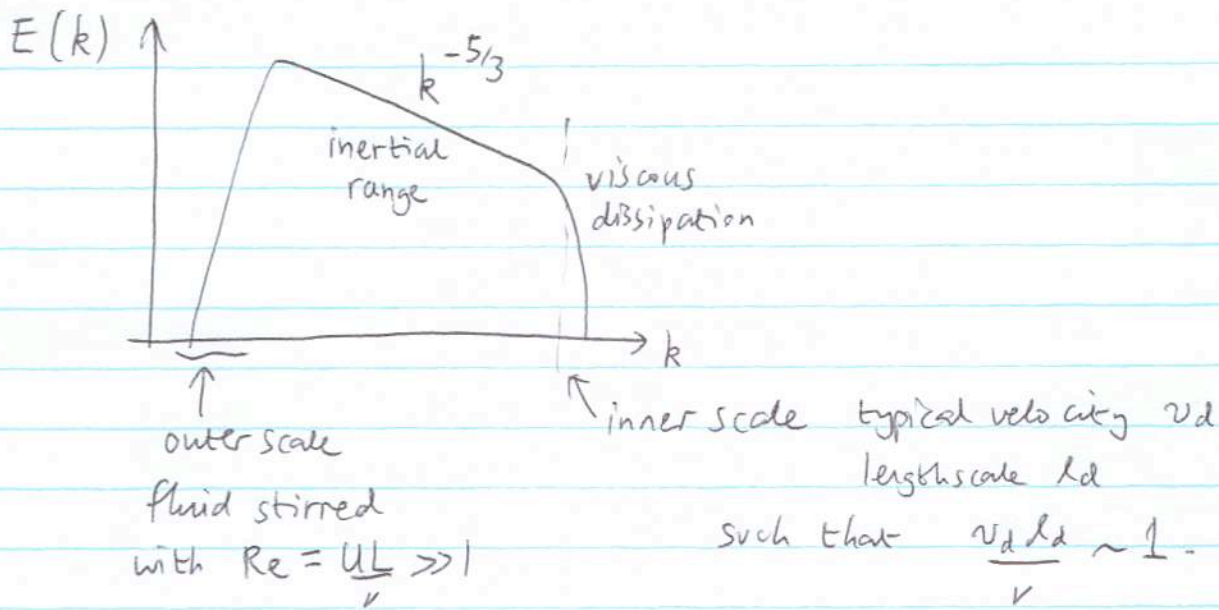 E(k)
k^{-5/3}
inertial
range
viscous
dissipation
k
outer scale
fluid stirred
with Re = UL/ν >> 1
inner scale typical velocity v_d
lengthscale l_d
such that v_d l_d/ν ~ 1.